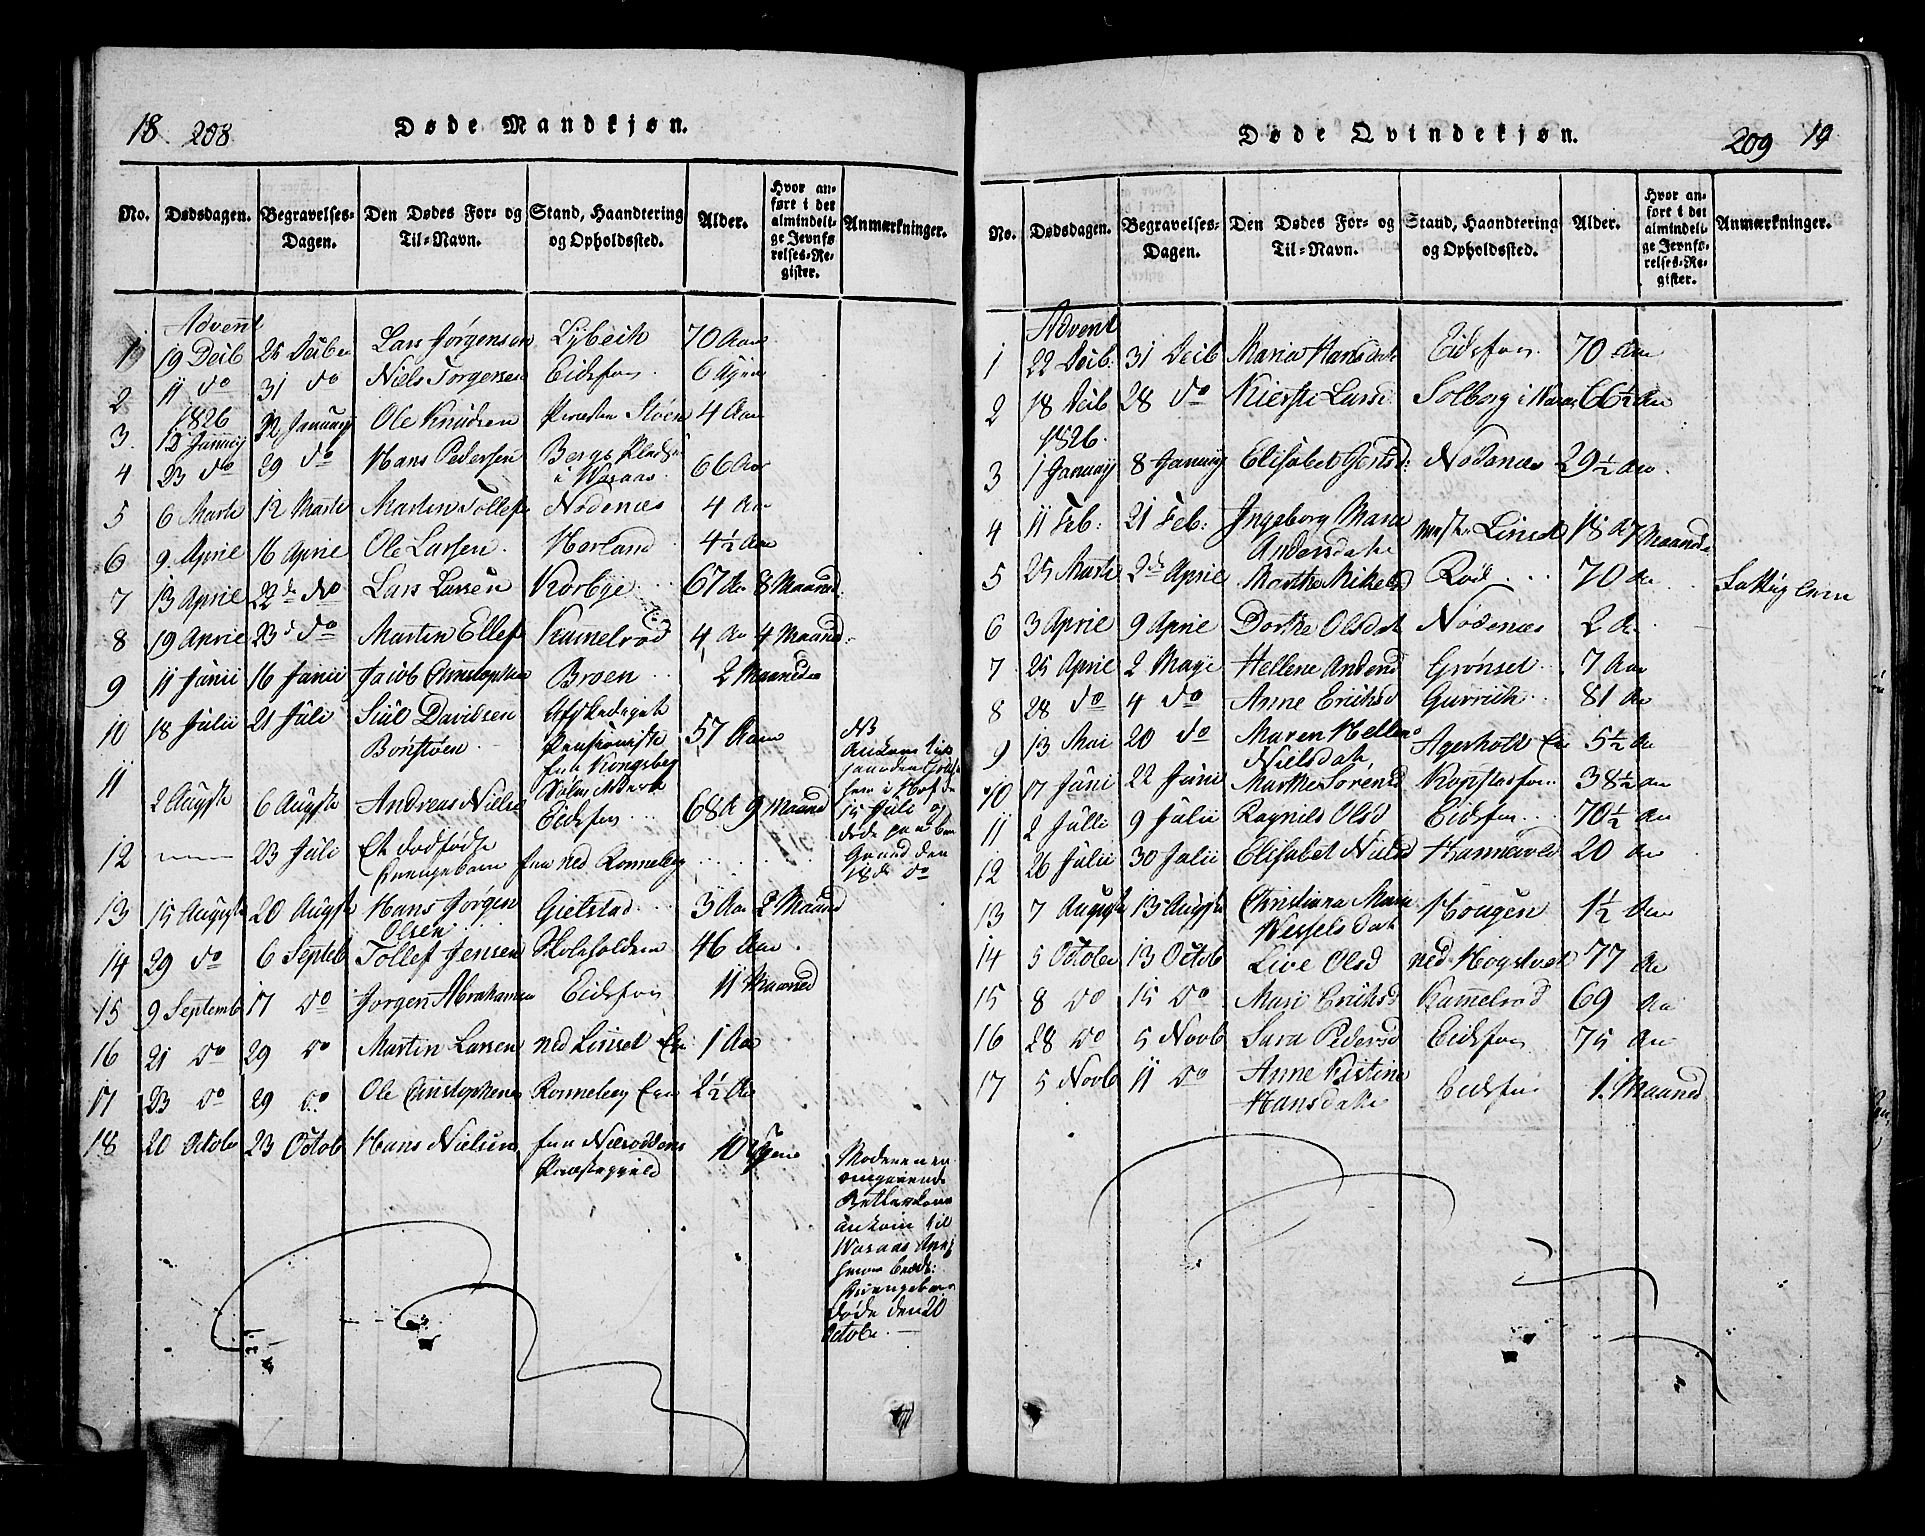 18 208 Døde Mandkjøn.
No. Dødsdagen. Begravelses-Dagen. Den Dødes For- og Til-Navn. Stand, Haandtering og Opholdssted. Alder. Hvor anført i det almindelige Jevnførelses-Register. Anmærkninger.
Advent
1 19 Decb 25 Decber Lars Jørgensen Lybeck 70 Aar
2 11 do 31 do Niels Torgersen Eidsfos 6 Uger
1826
3. 12 January 22 January Ole Knudsen 4 Aar
4 23 do 29 do Hans Pedersen Bergs Plads i Waraas 66 Aar
5 6 Marti 12 Marti Martin Tollefs Nødenæs 4 Aar
6 9. Aprile 16 Aprile Ole Larsen Horland 4½ Aar
7 13 Aprile 22de do Lars Larsen Korbye 67 Aar 8 Maaned
8 19 Aprile 23d do Martin Ellefs Kamelrød 4 Aar 4 Maaned
9 11 Junii 16 Junii Jacob Christophersen Broen 2 Maaneder
10 18 Julii 21 Juli Siul Davidsen Afskediget 57 Aar NB
Børstøen Pensionist Ankom til
fra Kongsberg
Sølv Værk hem i Hof de
11 2 August 6 August Andreas Niels Eidsfos 68 A 9 Maaned 15 Juli og
døde paa
12 23 Juli Et dødfødt Drengebarn fra ned Ronneberg Grund den
18de do
13 15 August 20 August Hans Jørgen Olsen Gietstad 3 Aar 2 Maaned
14 29 do 6 Septeb Tollef Jensen Skoleholderen 46 Aar
15 9 Septemb 17 do Jørgen Abrahamsen Eidsfos 11 Maaned
16 21 do 29 do Martin Larsen ned Linset Eie 1 Aar
17 23 do 29 do Ole Christophersen Ronneberg Eie 2½ Aar
18 20 Octobr 23 Octob Hans Nielsen fra Næroddens Præstegjeld 10 Uger
Moderen en
omgaaende
Betlerkone
ankom til
Waraas
Drengebarn
døde den 20
Octobr.
Døde Qvindekjøn. 209 19
No. Dødsdagen. Begravelses-Dagen. Den Dødes For- og Til-Navn. Stand, Haandtering og Opholdssted. Alder. Hvor anført i det almindelige Jevnførelses-Register. Anmærkninger.
Advent
1 22 Decb: 31 Decb Maria Hansdat Eidsfos 70 Aar
2 18 Decb 28 do Kierste Larsd Solberg i Waraas 66½ Aar
1826.
3 1 January 8 January Elisabet Gertsd: Nødenæs 29½ Aar
4 11 Feb: 21 Feb: Ingeborg Marie Andersdatter Linset 18 A 7 Maaneder
5 25 Marti 2d Aprile Marthe Mikelsd Rød 70 Aar Fattiglem
6 3 Aprile 9 Aprile Dorthe Olsdat Nødenæs 2 Aar
7 25 Aprile 2 Maye Hellene Andersd Grønset 7 Aar
8 28 do 4 do Anne Eriksd Gurrik 81 Aar
9 13 Mai 20 do Maren Hellene Nielsdat Agerholt Eie 5½ Aar
10 17 Juni 22 Juni Marthe Sørensd Kopstadfos 38½ Aar
11 2 Julii 9 Julii Ragnild Olsd Eidsfos 70½ Aar
12 26 Julii 30 Julii Elisabet Nielsd Hannevold 20 Aar
13 7 August 13 August Christiana Marie Wesselsdat Hougen 1½ Aar
14 5 October 13 Octob Live Olsd ned Hogstvet 77 Aar
15 8 do 15 do Mari Eriksd Kamelrød 69 Aar
16 28 do 5 Novb Sara Pedersd Eidsfos 75 Aar
17 5 Novb 11 do Anne Kistine Hansdatter Eidsfos 1 Maaned